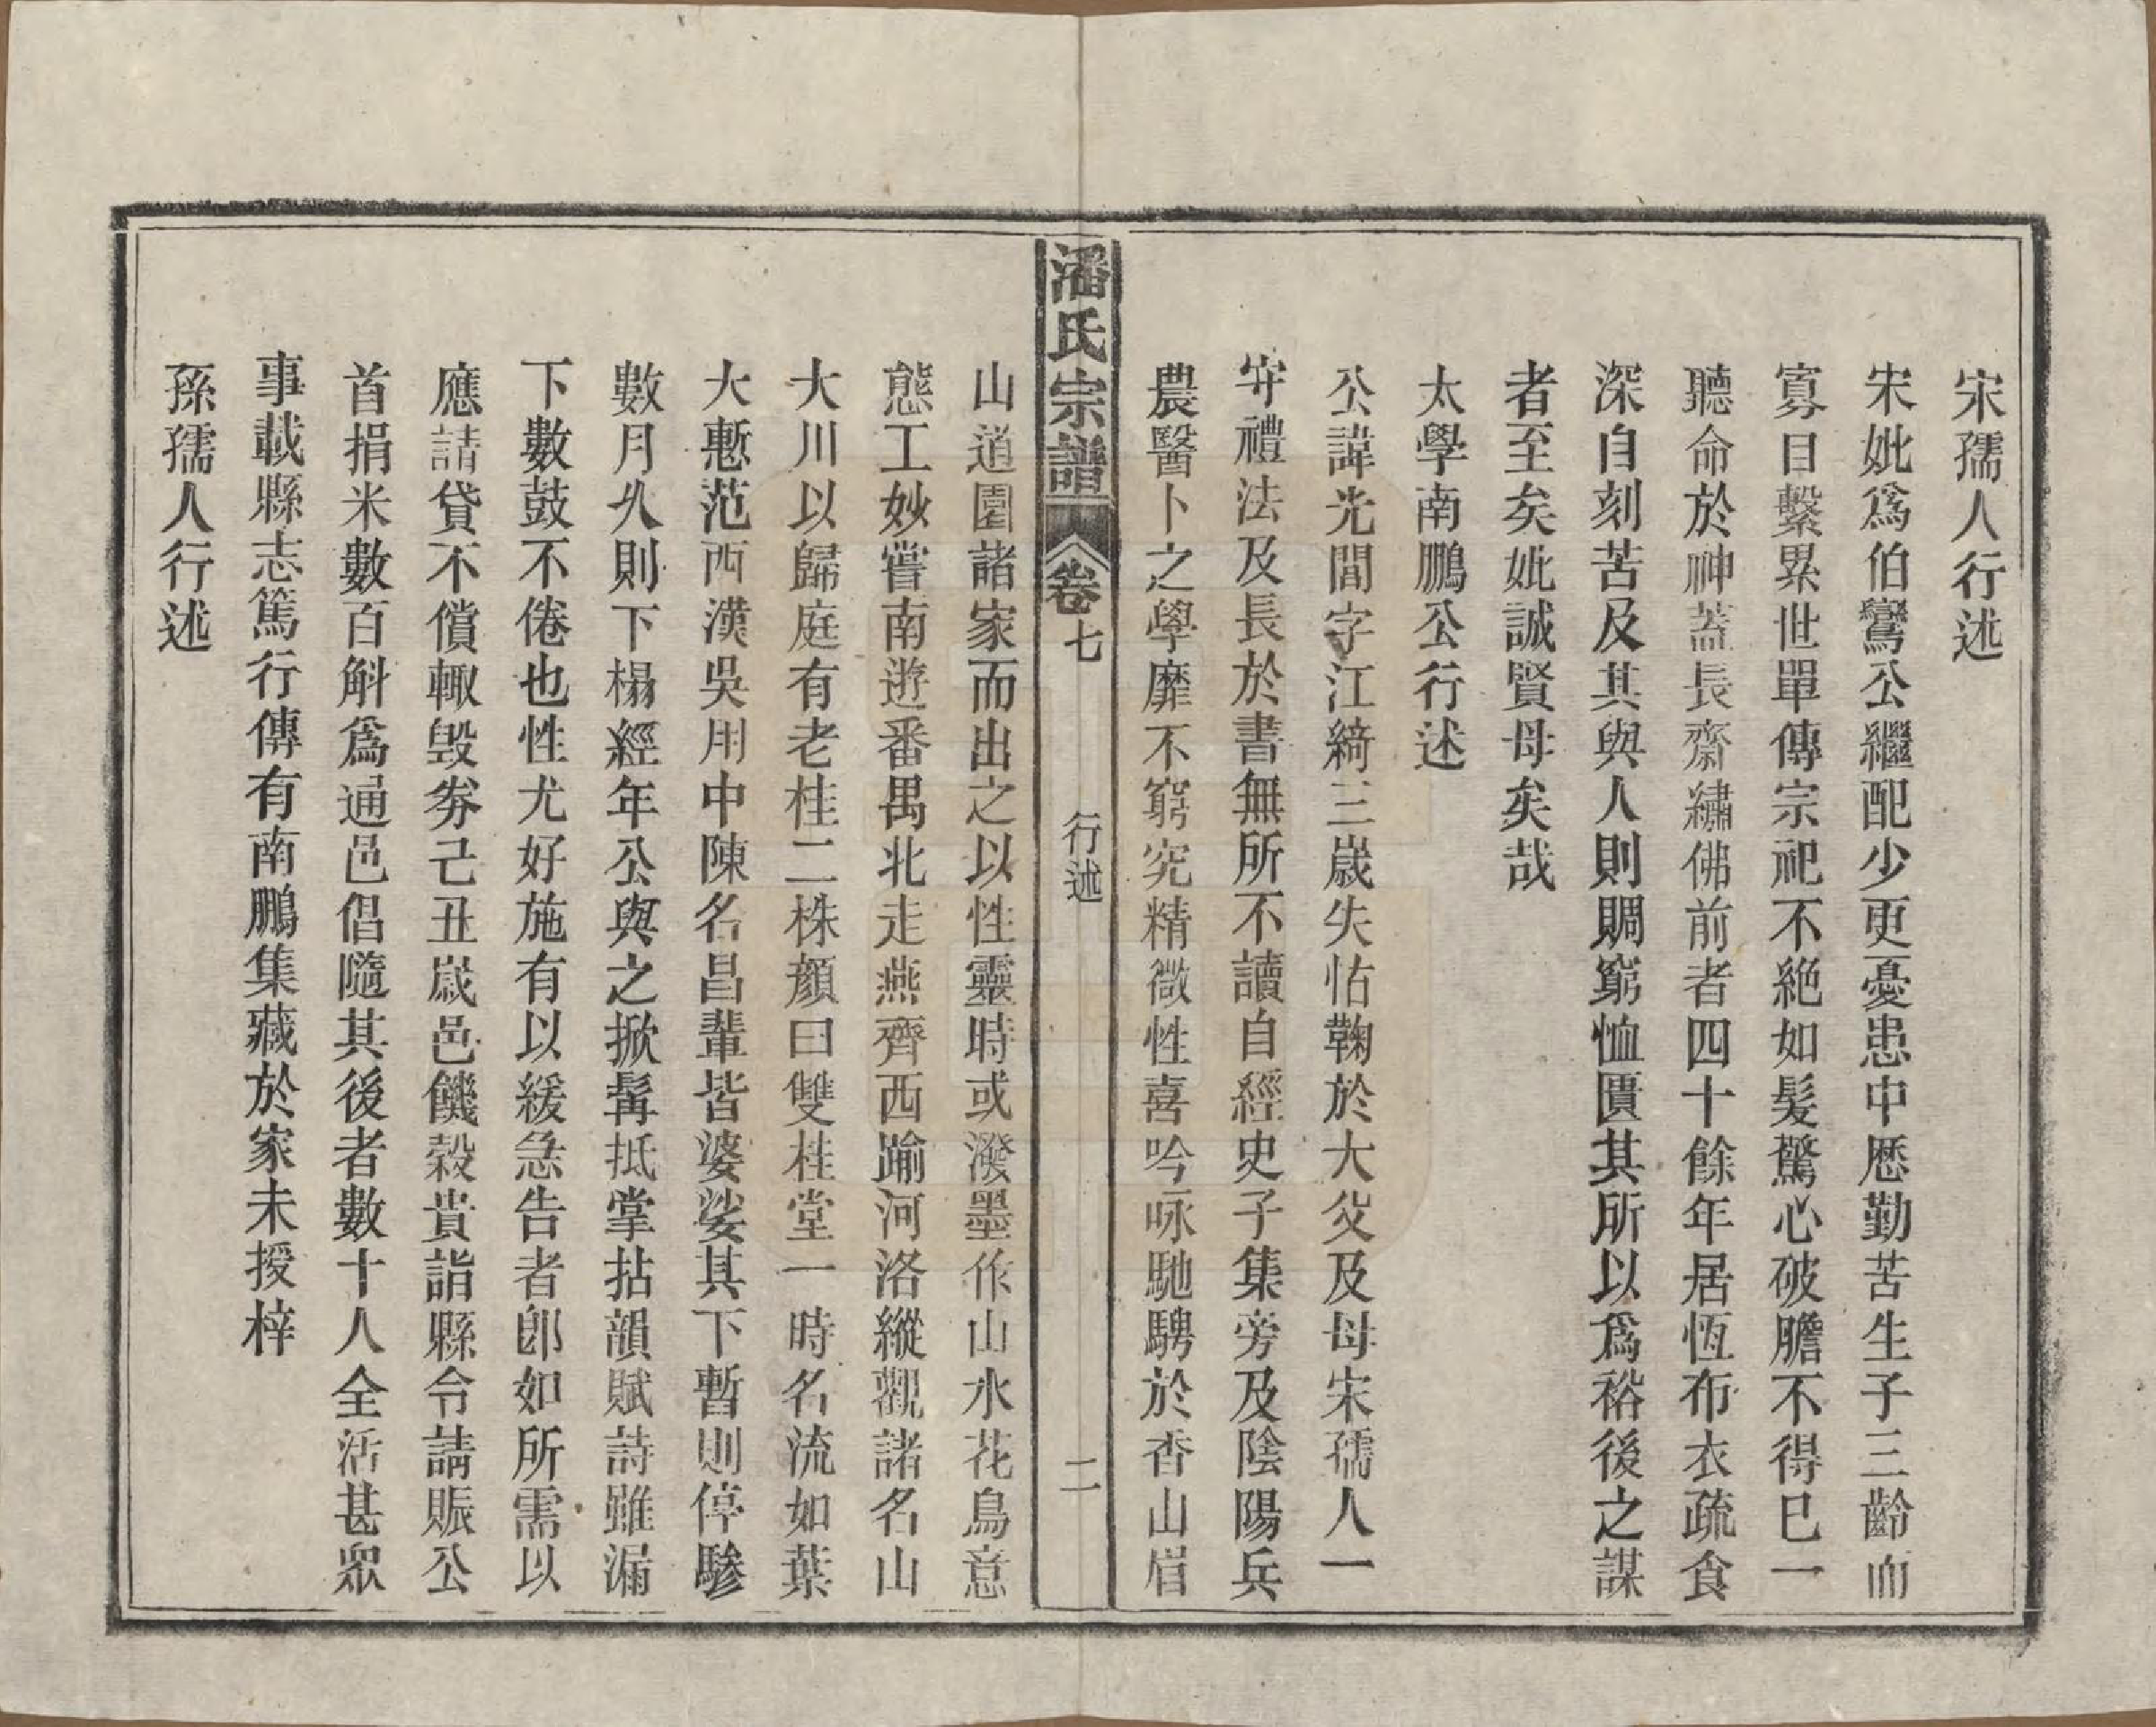 宋孺人行述
宋妣爲伯鸞公繼配少更憂患中歷勤苦生子三齡而
寡日繫累世單傳宗祀不絶如髮驚心破膽不得已一
聽命於神蓋長齋繡佛前者四十餘年居恆布衣疏食
深自刻苦及其與人則賙窮恤匱其所以爲裕後之謀
者至矣妣誠賢母矣哉
太學南鵬公行述
公諱光閭字江綺三歲失怙鞠於大父及母宋孺人一
守禮法及長於書無所不讀自經史子集旁及陰陽兵
農醫卜之學靡不窮究精微性喜吟咏馳騁於香山眉
潘氏宗譜 卷七 行述 二
山道園諸家而出之以性靈時或潑墨作山水花鳥意
態工妙嘗南遊番禺北走燕齊西踰河洛縱觀諸名山
大川以歸庭有老桂二株顏曰雙桂堂一時名流如葉
大慙范西漢吳用中陳名昌輩皆婆娑其下暫則停驂
數月久則下榻經年公與之掀髯抵掌拈韻賦詩雖漏
下數鼓不倦也性尤好施有以緩急告者卽如所需以
應請貸不償輙毀券己丑歲邑饑穀貴詣縣令請賑公
首捐米數百斛爲通邑倡隨其後者數十人全活甚衆
事載縣志篤行傳有南鵬集藏於家未授梓
孫孺人行述